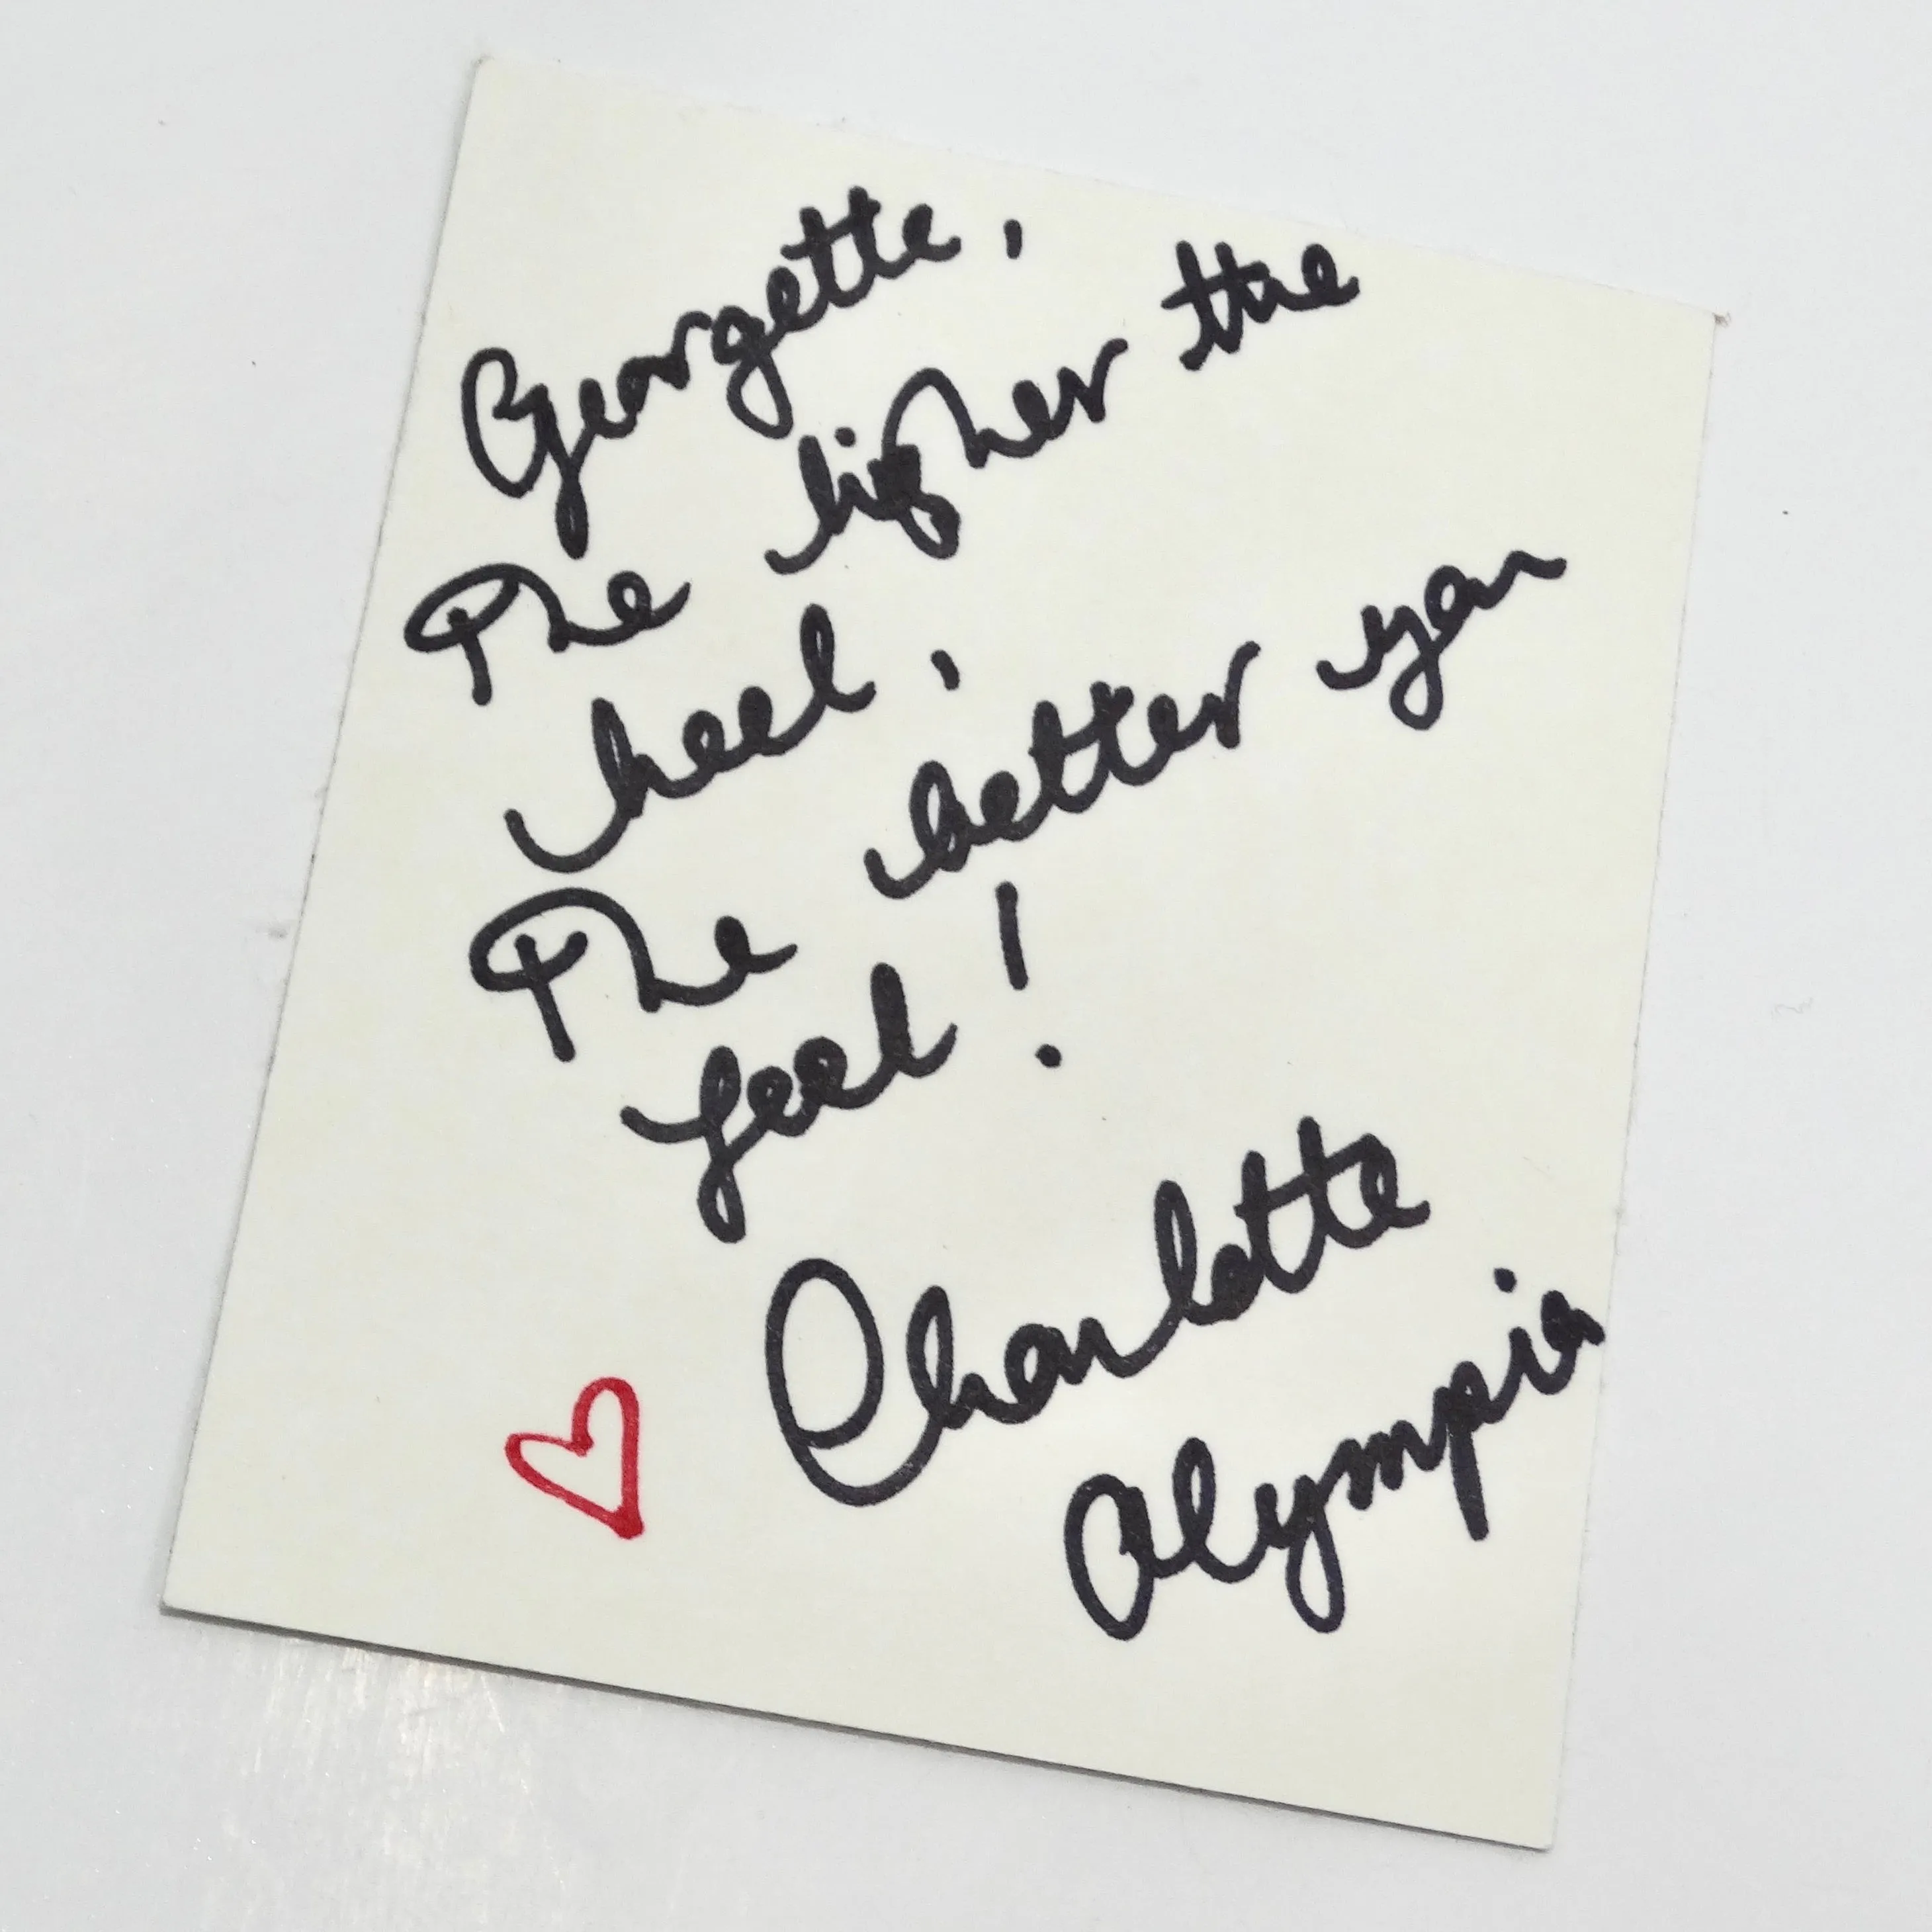 Georgette,
The higher the
heel,
The better you
feel!
Charlotte
Olympia